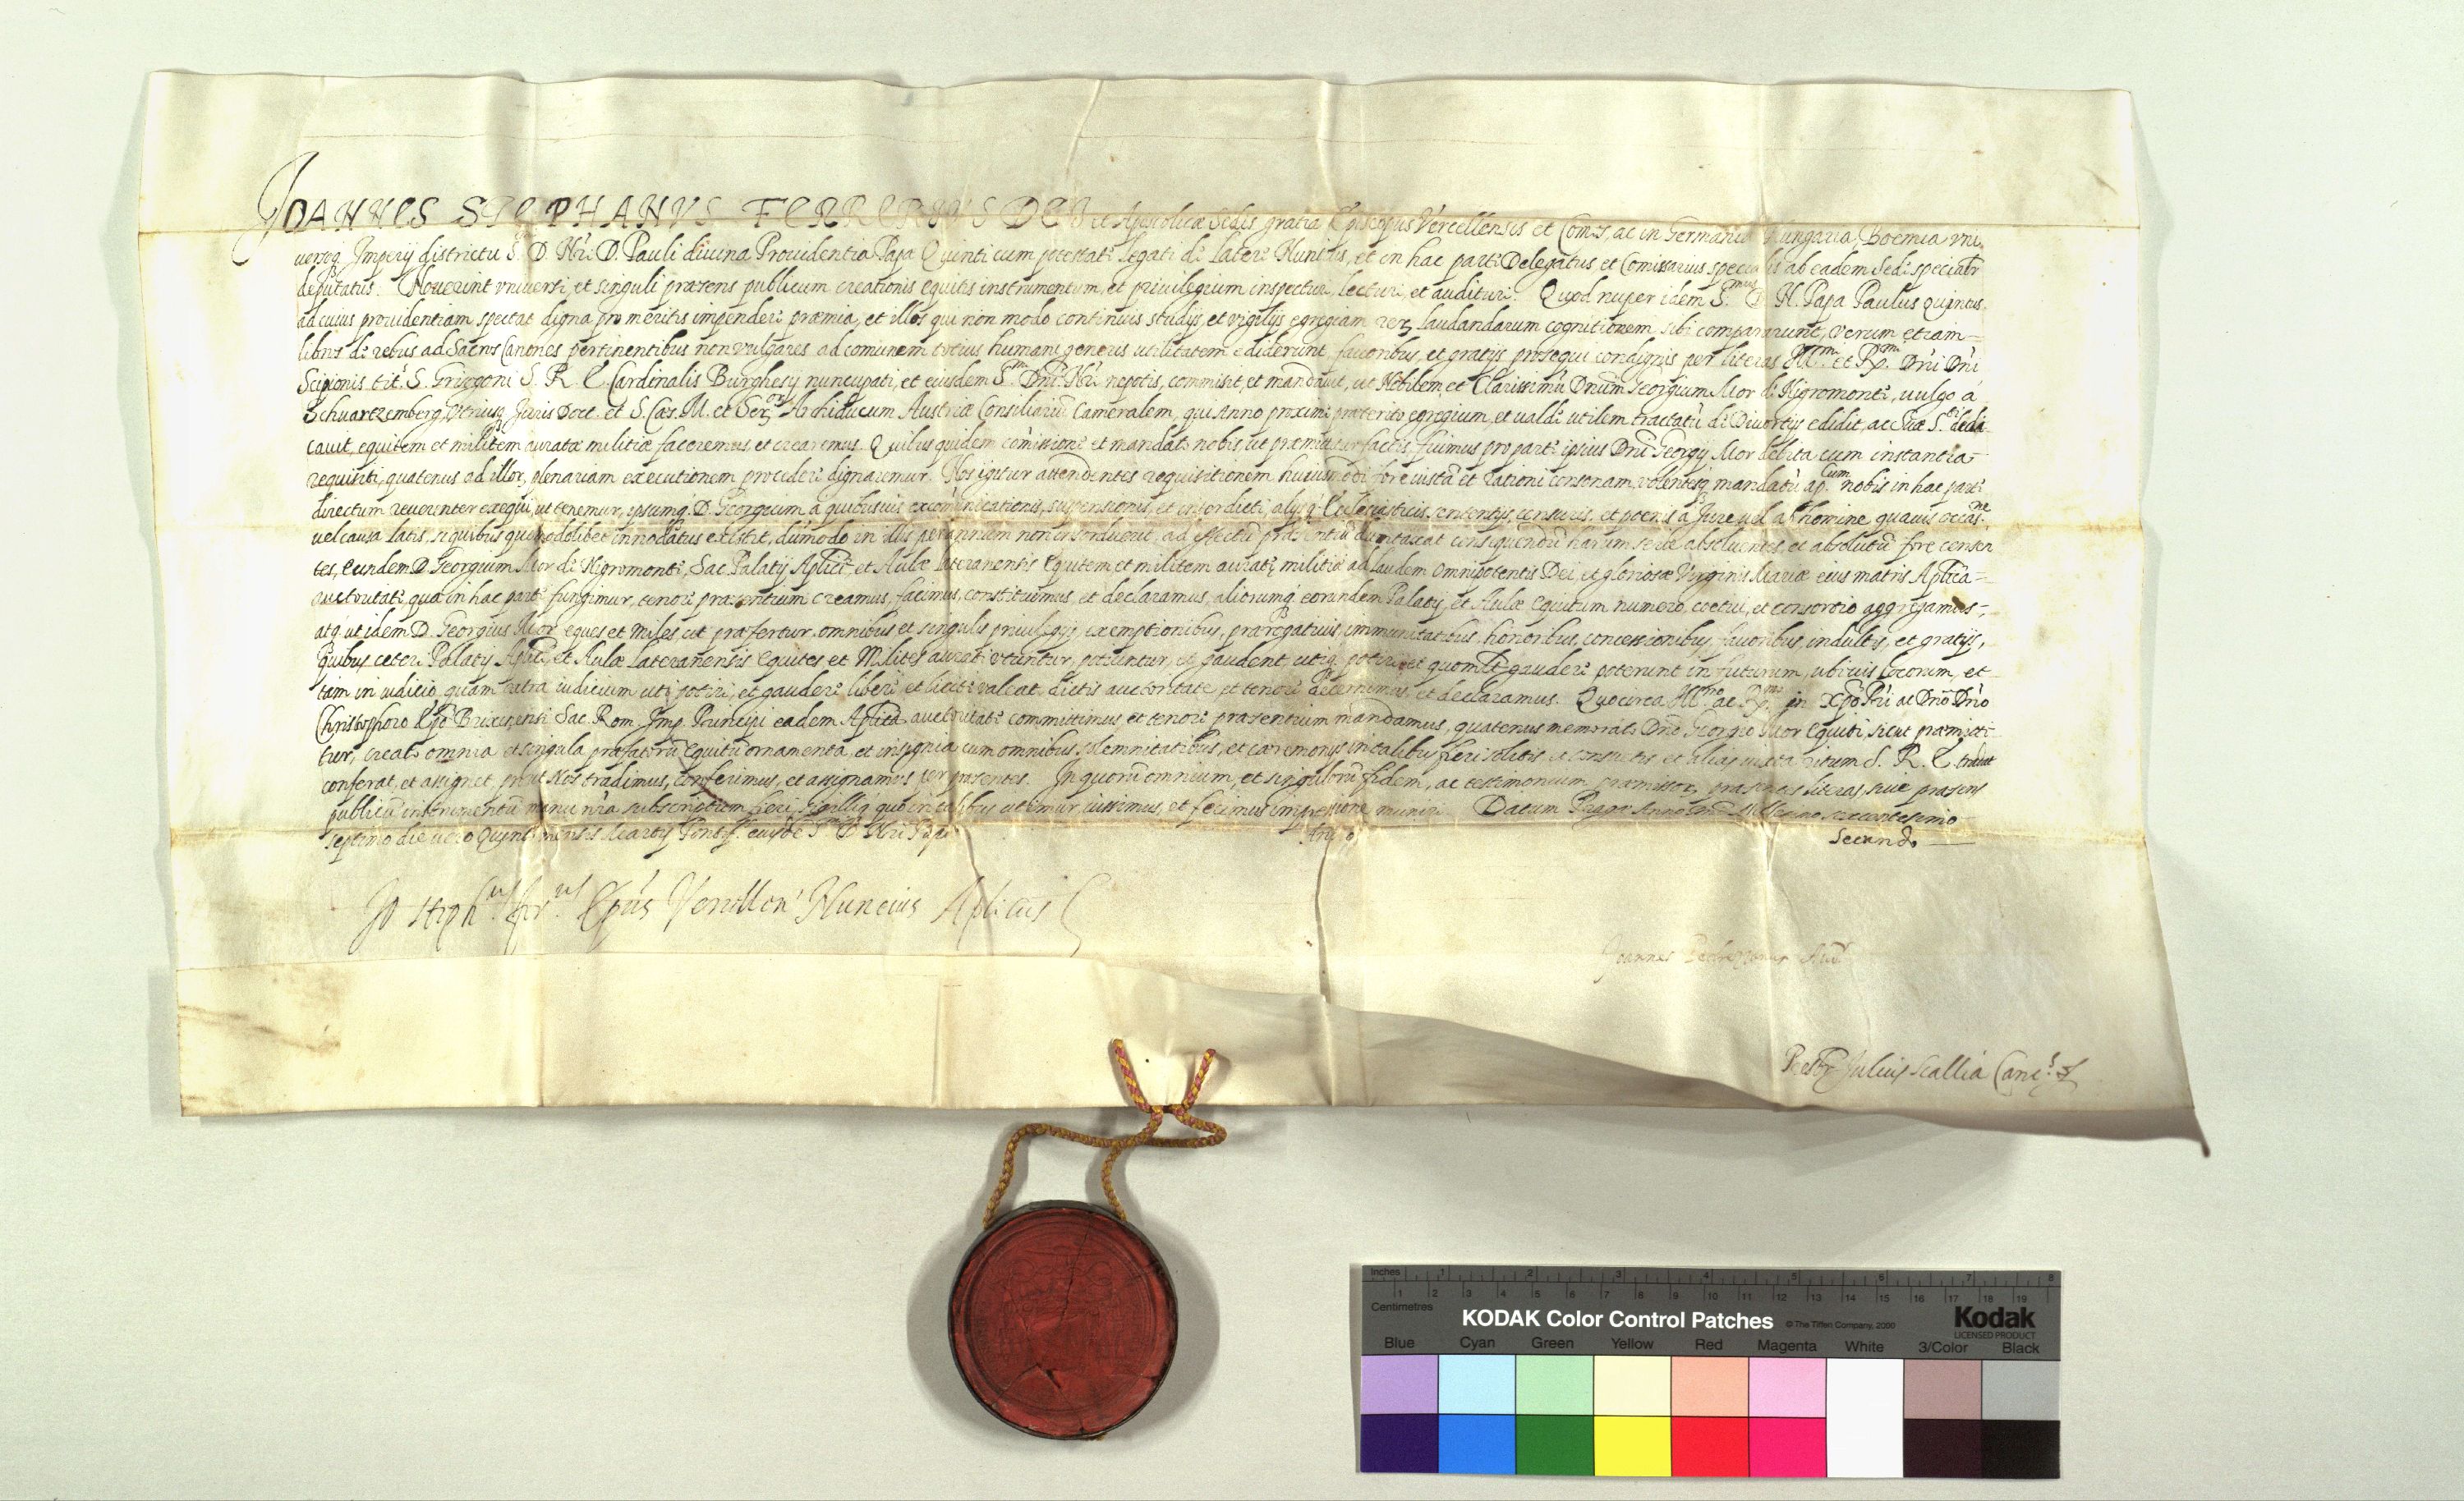 JOANNES STEPHANVS FERRERIVS DEI et Apostolicæ Sedis gratia Episcopus Vercellensis et Comes, ac in Germania Hungaria, Boemia vni
uersoq. Imperij districtu S. D. Nri D. Pauli diuina Prouidentia Papæ Quinti cum potestate Legati de Latere Nuntius, et in hac parte Delegatus et Comissarius specialis ab eadem Sede specialr
deputatus. Nouerint vniuersi, et singuli præsens publicum creationis equitis instrumentum, et priuilegium inspecturi, lecturi, et audituri. Quod nuper idem S.mus D. N. Papa Paulus Quintus
ad cuius prouidentiam spectat digna pro meritis impendere præmia, et illos qui non modo continuis studijs, et vigilijs egregiam rerum laudandarum cognitionem sibi compararunt, verum etiam
libris de rebus ad Sacros Canones pertinentibus non vulgares ad comunem totius humani generis utilitatem ediderunt fauoribus, et gratijs prosequi condignis per literas Ill.mi et R.mi Dni Dni
Scipionis tit. S. Grisogoni S. R. E. Cardinalis Burghesij nuncupati, et eiusdem S.mi Dni Nri nepotis, commisit, et mandauit, ut Nobilem et Clarissimū Dnum Georgium Mor de Nigromonte, uulgo à
Schuartzemberg, Vtriusq Juris Doct. et S. Cæs. M. et Ser. Archiducum Austriæ Consiliariū Cameralem, qui Anno proximè præterito egregium, et ualde utilem tractatū de Diuortijs edidit, ac Suæ S.ti dedi
cauit, equitem et militem auratæ militiæ faceremus, et crearemus. Quibus quidem comissione et mandato nobis, ut præmittitur factis, fuimus pro parte ipsius Dni Georgij Mor debita cum instantia
requisiti, quatenus ad illor plenariam executionem procedere dignaremur. Nos igitur attendentes requisitionem huiusmodi fore iustā et rationi consonam, volentesq mandatū ap.cum nobis in hac parte
directum reuerenter exequi, ut tenemur, ipsumq D. Georgium à quibusuis excomunicationis, suspensionis, et interdicti, alijsq Ecclesiasticis sententijs, censuris, et poenis à Jure uel ab homine quauis occasne
uel causa latis, si quibus quomodolibet innodatus existit, dūmodo in illis per annum non insorduerit, ad effectū præsentiū dumtaxat consequendū harum serie absoluentes, et absolutū fore censen
tes, Eundem D. Georgium Mor de Nigromonte, Sac. Palatij Aplici et Aulæ Lateranensis Equitem et militem auratæ militiæ ad laudem Omnipotentis Dei, et gloriosæ Virginis Mariæ eius matris Aplica
auctoritate, qua in hac parte fungimur, tenore præsentium creamus, facimus, constituimus, et declaramus, aliorumq eorundem Palatij, et Aulæ Equitum numero, coetui, et consortio aggregamus
atq ut idem D. Georgius Mor eques et miles ut præfertur omnibus et singulis priuilegijs, exemptionibus, prærogatiuis, immunitatibus, honoribus, concessionibus, fauoribus, indultis, et gratijs,
quibus ceteri Palatij Aplici, et Aulæ Lateranensis Equites et Milites aurati vtuntur, potiuntur, et gaudent, utiq. potiri et quomlt gaudere poterunt in futurum, ubiuis locorum, et
tam in iudicio, quam extra iudicium uti, potiri, et gaudere liberè, et licitè valeat, dictis auctoritate et tenore decernimus, et declaramus. Quocirca Ill.mo ac R.mo in Xpō Pri ac Dno Dno
Christophoro Epō Brixinensi Sac. Rom. Imp. Principi eadem Aplica auctoritate committimus et tenore præsentium mandamus, quatenus memorato Dno Georgio Mor Equiti, sicut præmitti
tur, creato omnia et singula præfatorū Equitū ornamenta, et insignia cum omnibus solemnitatibus, et cæremonijs in talibus fieri solitis et consuetis et alias iuxta ritum S. R. E. tradat
conferat, et assignet, prout Nos tradimus, conferimus, et assignamus per præsentes. In quorū omnium, et singulorū fidem, ac testimonium præmissor, præsentes literas siue præsens
publicū instrumentū manu nra subscriptum fieri, sigilliq quo in talibus utimur, iussimus, et fecimus impressione muniri. Datum Pragæ Anno Dni Millesimo sexcentesimo
septimo die vero Quinta mensis Martij Pontif. eiusdē S. D. Nri Papæ Anno Secundo
Jo. Steph.us Ferr.us Epūs Vercellen Nuncius Aplicus
Joannes Aud.
Presbr Julius Scallia Canc.s
Inches 1 2 3 4 5 6 7 8
Centimetres 1 2 3 4 5 6 7 8 9 10 11 12 13 14 15 16 17 18 19
KODAK Color Control Patches © The Tiffen Company, 2000 Kodak
LICENSED PRODUCT
Blue Cyan Green Yellow Red Magenta White 3/Color Black